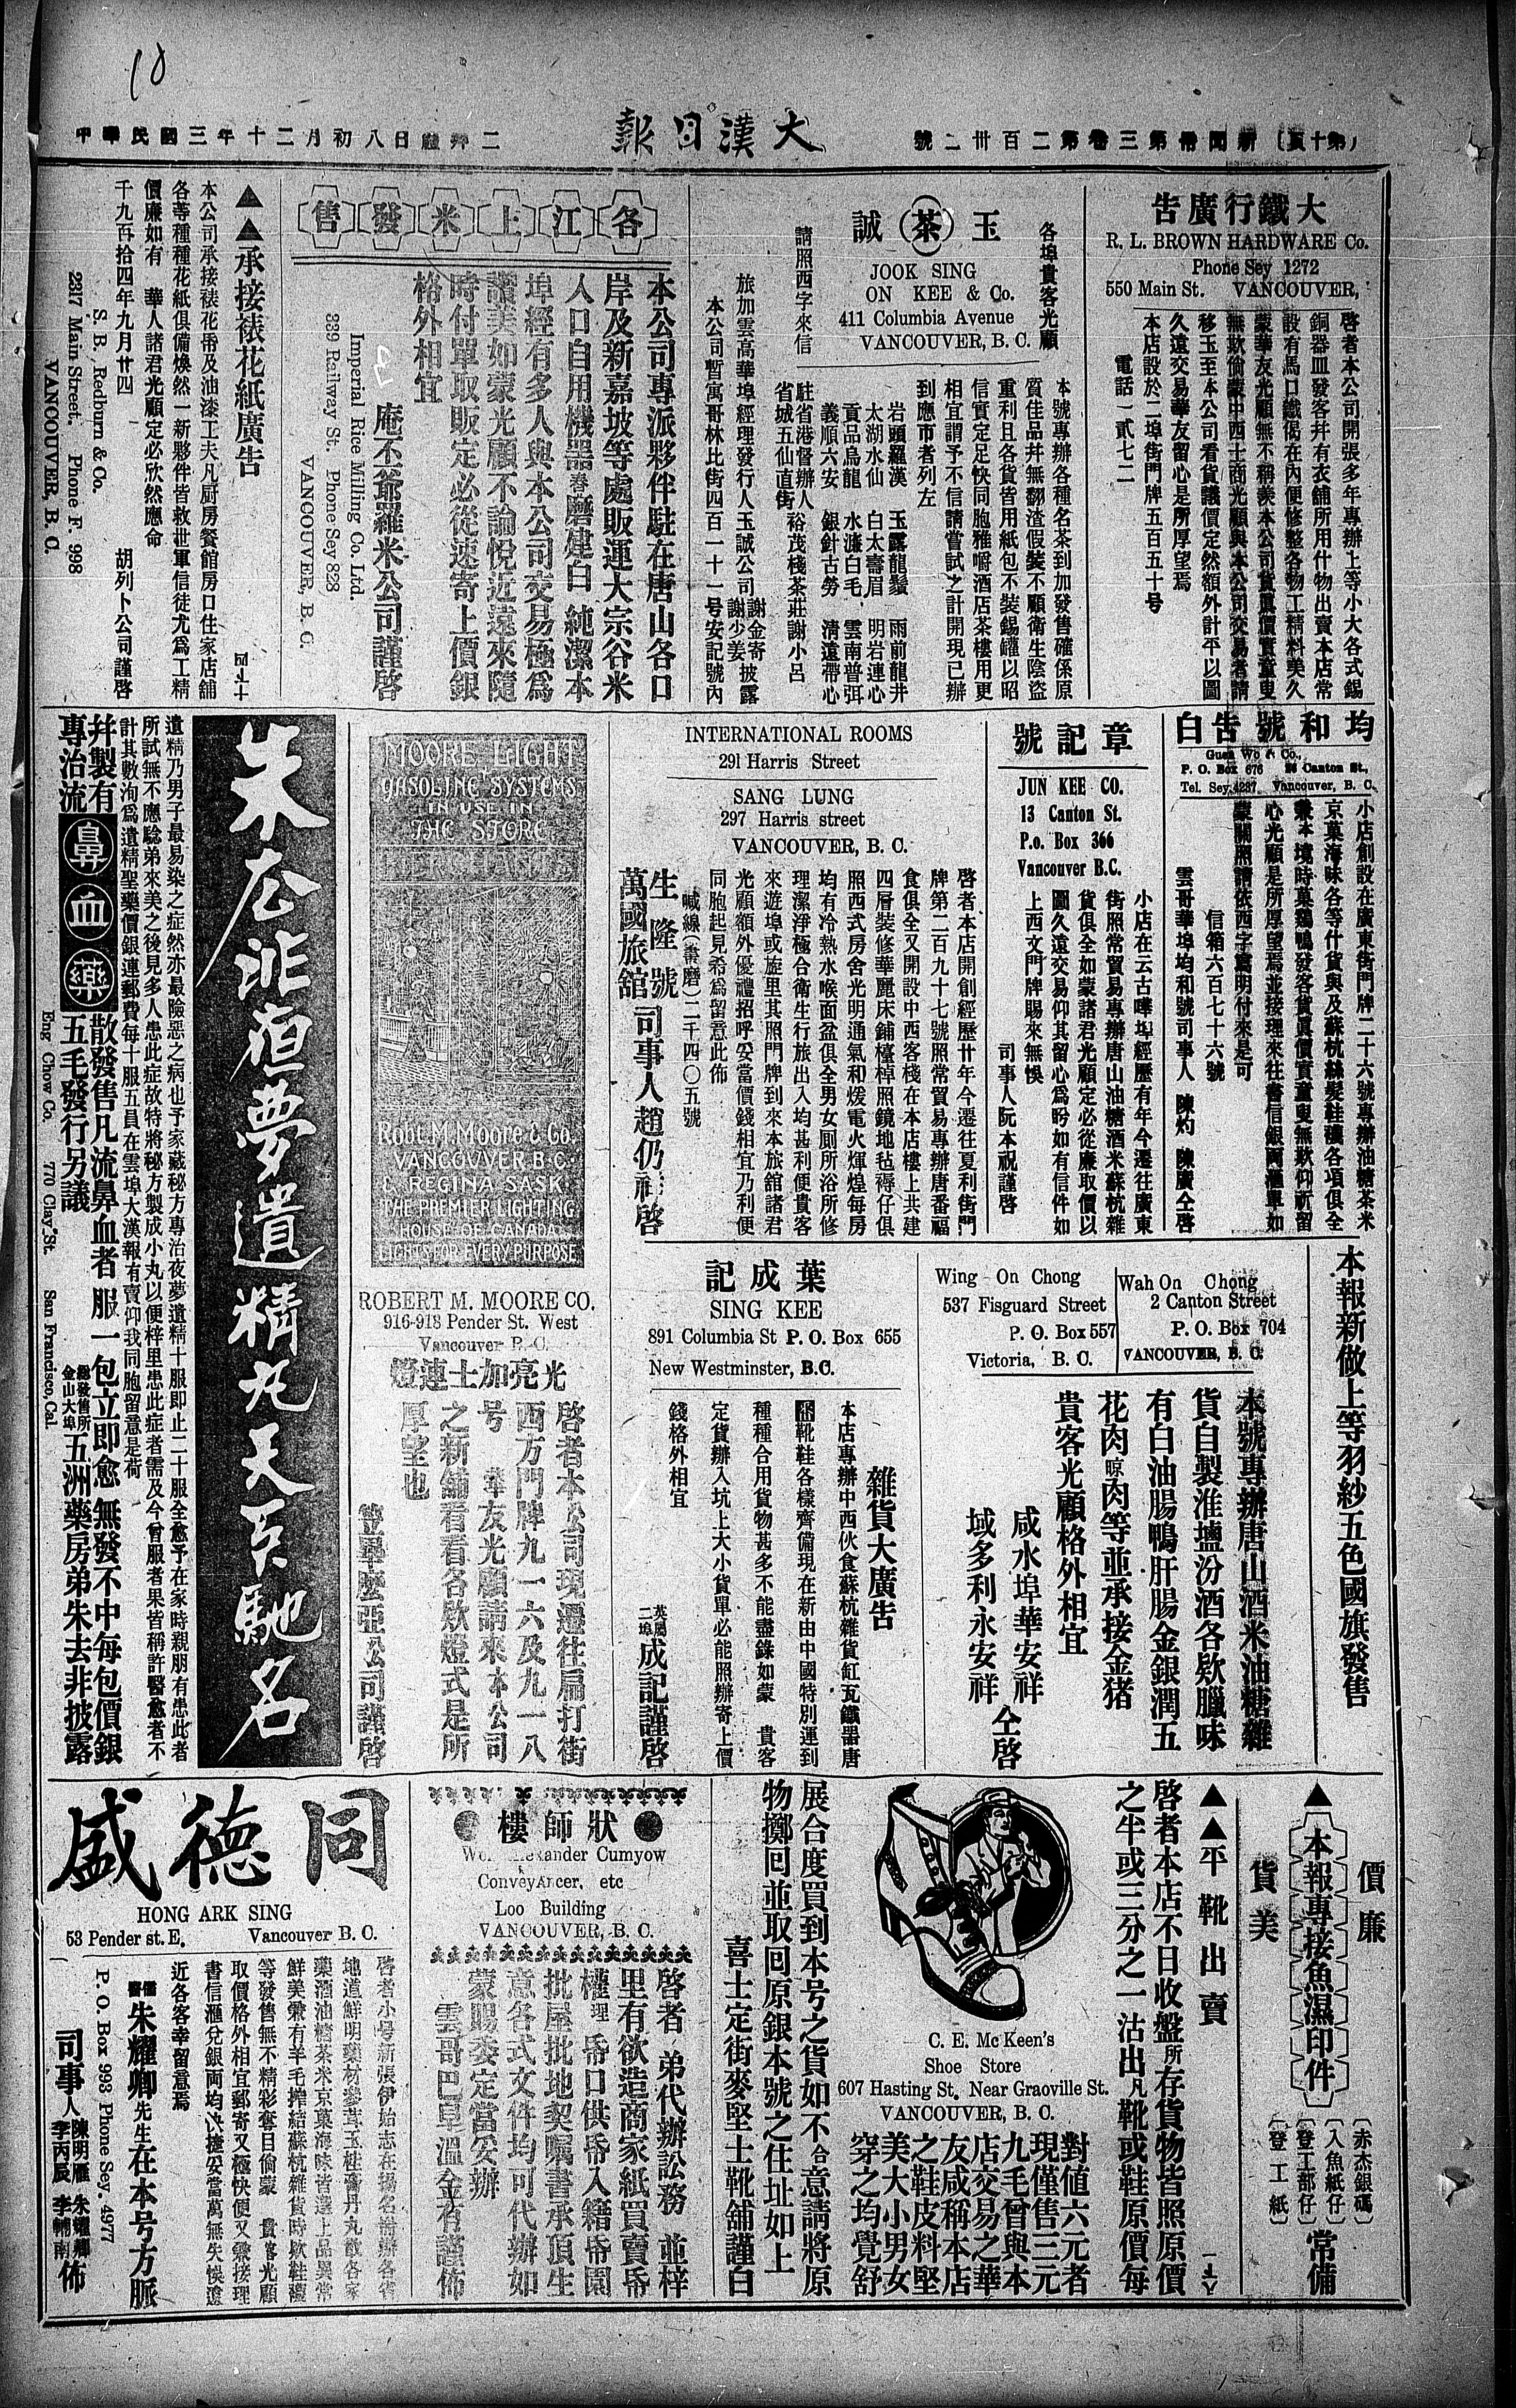 10
(第十頁) 新聞冊第三卷第二百卅二號
大漢日報
中華民國三年十二月初八日禮拜二
大鐵行廣告
R. L. BROWN HARDWARE Co.
Phone Sey 1272
550 Main St. VANCOUVER,
啓者本公司開張多年專辦上等小大各式錫
銅器皿發客幷有衣舖所用什物出賣本店常
設有馬口鐵偈在內便修整各物工精料美久
蒙華友光顧無不稱羨本公司貨眞價實童叟
無欺倘蒙中西士商光顧與本公司交易者請
移玉至本公司看貨議價定然額外計平以圖
久遠交易華友留心是所厚望焉
本店設於二埠街門牌五百五十号
電話一貳七二
各埠貴客光顧
玉茶誠
JOOK SING
ON KEE & Co.
411 Columbia Avenue
VANCOUVER, B. C.
請照西字來信
本號專辦各種名茶到加發售確係原
質佳品幷無翻渣假裝不顧衛生陰盜
重利且各貨皆用紙包不裝錫罐以昭
信實定足快同胞雅嚼酒店茶樓用更
相宜謂予不信請嘗試之計開現已辦
到應市者列左
岩頭羅漢 玉露龍鬚 雨前龍井
太湖水仙 白太壽眉 明岩連心
貢品烏龍 水濂白毛 雲南普弭
義順六安 銀針古勞 清遠帶心
駐省港督辦人
省城五仙直街 裕茂棧茶莊謝小呂
旅加雲高華埠經理發行人玉誠公司 謝金寄 謝少姜 披露
本公司暫寓哥林比街四百一十一号安記號內
各江上米發售
本公司專派夥伴駐在唐山各口
岸及新嘉坡等處販運大宗谷米
人口自用機器舂磨建白 純潔本
埠經有多人與本公司交易極爲
讚美如蒙光顧不論悅近遠來隨
時付單取販定必從速寄上價銀
格外相宜
庵丕爺羅米公司謹啓
Imperial Rice Milling Co. Ltd.
339 Railway St. Phone Sey 823
VANCOUVER, B. C.
▲▲承接裱花紙廣告
本公司承接裱花帋及油漆工夫凡厨房餐館房口住家店舖
各等種種花紙俱備煥然一新夥伴皆救世軍信徒尤爲工精
價廉如有 華人諸君光顧定必欣然應命
千九百拾四年九月廿四 胡列卜公司謹啓
S. B, Redburn & Co.
2317 Main Street. Phone F. 998
VANCOUVER, B. C.
均和號告白
Guen Wo & Co.,
P. O. Box 676 26 Canton St.,
Tel. Sey.4237. Vancouver, B. C.
小店創設在廣東街門牌二十六號專辦油糖茶米
京菓海味各等什貨與及蘇杭絲髮鞋襪各項俱全
兼本境時菓鷄鴨發客貨眞價實童叟無欺仰祈留
心光顧是所厚望焉並接理來往書信銀兩滙單如
蒙關照請依西字寫明付來是可
信箱六百七十六號
雲哥華埠均和號司事人 陳灼 陳廣仝啓
章記號
JUN KEE CO.
13 Canton St.
P.o. Box 366
Vancouver B.C.
小店在云古嘩埠經歷有年今遷往廣東
街照常貿易專辦唐山油糖酒米蘇杭雜
貨俱全如蒙諸君光顧定必從廉取價以
圖久遠交易仰其留心爲盼如有信件如
上西文門牌賜來無悞
司事人阮本祝謹啓
INTERNATIONAL ROOMS
291 Harris Street
SANG LUNG
297 Harris street
VANCOUVER, B. C.
啓者本店開創經歷廿年今遷往夏利街門
牌第二百九十七號照常貿易專辦唐番福
食俱全又開設中西客棧在本店樓上共建
四層裝修華麗床鋪檯椅照鏡地毡褥仔俱
照西式房舍光明通氣和煖電火煇煌每房
均有冷熱水喉面盆俱全男女厠所浴所修
理潔淨極合衛生行旅出入均甚利便貴客
來遊埠或旋里其照門牌到來本旅舘諸君
光顧額外優禮招呼妥當價錢相宜乃利便
同胞起見希爲留意此佈
喊線( 磨)二千四〇五號
生隆號
萬國旅舘 司事人趙仍祥啓
MOORE LIGHT
GASOLINE SYSTEMS
IN USE IN
THE STORE
MERCHANTS
Robt. M. Moore & Co.
VANCOUVER B.C.
& REGINA SASK.
THE PREMIER LIGHTING
HOUSE OF CANADA
LIGHTS FOR EVERY PURPOSE
ROBERT M. MOORE CO.
916-918 Pender St. West
Vancouver B.C.
光亮加士連燈
啓者本公司現遷往扁打街
西方門牌九一六及九一八
号 華友光顧請來本公司
之新舖看看各欵燈式是所
厚望也
笠畢麼亞公司謹啓
朱去非夜夢遺精丸天下馳名
遺精乃男子最易染之症然亦最險惡之病也予家藏秘方專治夜夢遺精十服即止二十服全愈予在家時親朋有患此者
所試無不應騐弟來美之後見多人患此症故特將秘方製成小丸以便梓里患此症者需及今曾服者果皆稱許醫愈者不
計其數洵爲遺精聖藥價銀連郵費每十服五員在雲埠大漢報有賣仰我同胞留意是荷
幷製有
專治流鼻血藥散發售凡流鼻血者 服一包立即愈 無發不中每包價銀
五毛發行另議 總發售所 金山大埠 五洲藥房弟朱去非披露
Eng Chow Co. 770 Clay St. San Francisco, Cal.
本報新做上等羽紗五色國旗發售
Wah On Chong
2 Canton Street
P. O. Box 704
VANCOUVER, B. C.
Wing On Chong
537 Fisguard Street
P. O. Box 557
Victoria, B. C.
本號專辦唐山酒米油糖雜
貨自製淮鹽汾酒各欵臘味
有白油腸鴨肝腸金銀潤五
花肉晾肉等並承接金猪
貴客光顧格外相宜
咸水埠華安祥
域多利永安祥 仝啓
葉成記
SING KEE
891 Columbia St P. O. Box 655
New Westminster, B.C.
雜貨大廣告
本店專辦中西伙食蘇杭雜貨缸瓦鐵器唐
番靴鞋各樣齊備現在新由中國特別運到
種種合用貨物甚多不能盡錄如蒙 貴客
定貨辦入坑上大小貨單必能照辦寄上價
錢格外相宜
英屬二埠 成記謹啓
價廉
▲本報專接魚濕印件
貨美
(赤杰銀碼)
(入魚紙仔)
(登工部仔)
(登工紙)
常備
▲▲平靴出賣
啓者本店不日收盤所存貨物皆照原價
之半或三分之一沽出凡靴或鞋原價每
對值六元者
現僅售三元
九毛曾與本
店交易之華
友咸稱本店
之鞋皮料堅
美大小男女
穿之均覺舒
C. E. McKeen's
Shoe Store
607 Hasting St. Near Graoville St.
VANCOUVER, B. C.
展合度買到本号之貨如不合意請將原
物擲囘並取囘原銀本號之住址如上
喜士定街麥堅士靴舖謹白
狀師樓
Cumyow
Conveyancer, etc
Loo Building
VANCOUVER, B. C.
啓者 弟代辦訟務 並梓
里有欲造商家紙買賣帋
權理 帋口供帋入籍帋園
批屋批地契嘱書承頂生
意各式文件均可代辦如
蒙賜委定當妥辦
雲哥巴阜溫金有謹佈
同德盛
HONG ARK SING
53 Pender st. E. Vancouver B. C.
啓者小号新張伊始志在揚名搜辦各省
地道鮮明藥材參茸玉桂膏丹丸散各家
藥酒油糖茶米京菓海味皆選上品異常
鮮美兼有羊毛 結蘇杭雜貨時欵鞋襪
等發售無不精彩奪目倘蒙 貴客光顧
取價格外相宜郵寄又極快便又兼接理
書信滙兌銀両均必捷妥當萬無失悞遠
近各客幸留意焉
儒醫朱耀卿先生在本号方脈
P. O. Box 993 Phone Sey. 4977
司事人 陳明雁 朱耀卿 李丙辰 李輔南 佈